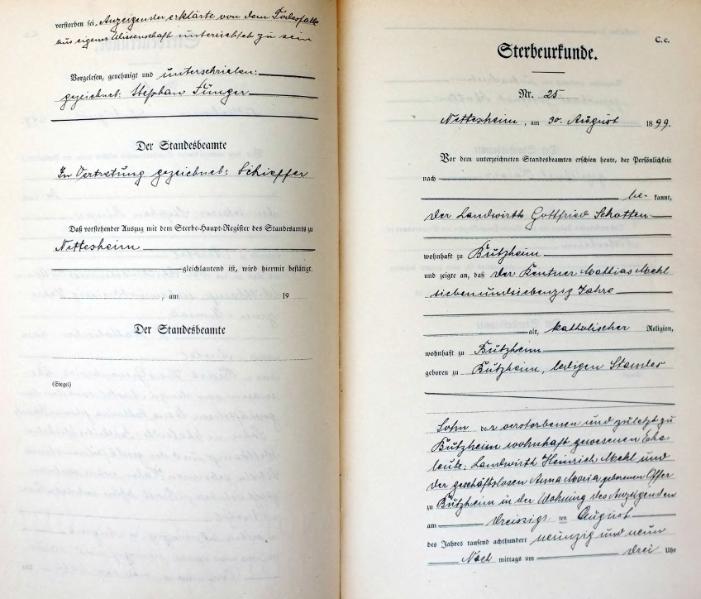 verstorben sei, Anzeigender erklärte von dem Todesfalle
aus eigener Wissenschaft unterrichtet zu sein
Vorgelesen, genehmigt und unterschrieben:
gezeichnet: Stephan Flinger
Der Standesbeamte
In Vertretung gezeichnet: Schieffer
Daß vorstehender Auszug mit dem Sterbe-Haupt-Register des Standesamts zu
Nettesheim
gleichlautend ist, wird hiermit bestätigt.
, am 19
Der Standesbeamte
(Siegel)
C. c.
Sterbeurkunde.
Nr. 25
Nettesheim, am 30. August 1899.
Vor dem unterzeichneten Standesbeamten erschien heute, der Persönlichkeit
nach
be- kannt,
der Landwirth Gottfried Schotten
wohnhaft zu Bützheim
und zeigte an, daß der Rentner Mathias Mehl
siebenundsiebenzig Jahre
alt, katholischer Religion,
wohnhaft zu Bützheim
geboren zu Bützheim, ledigen Standes
Sohn der verstorbenen und zuletzt zu
Bützheim wohnhaft gewesenen Ehe-
leute: Landwirth Heinrich Mehl und
der geschäftslosen Anna Maria geborenen Offer
zu Bützheim in der Wohnung des Anzeigenden
am dreiszigsten August
des Jahres tausend achthundert neunzig und neun
Nach mittags um drei Uhr